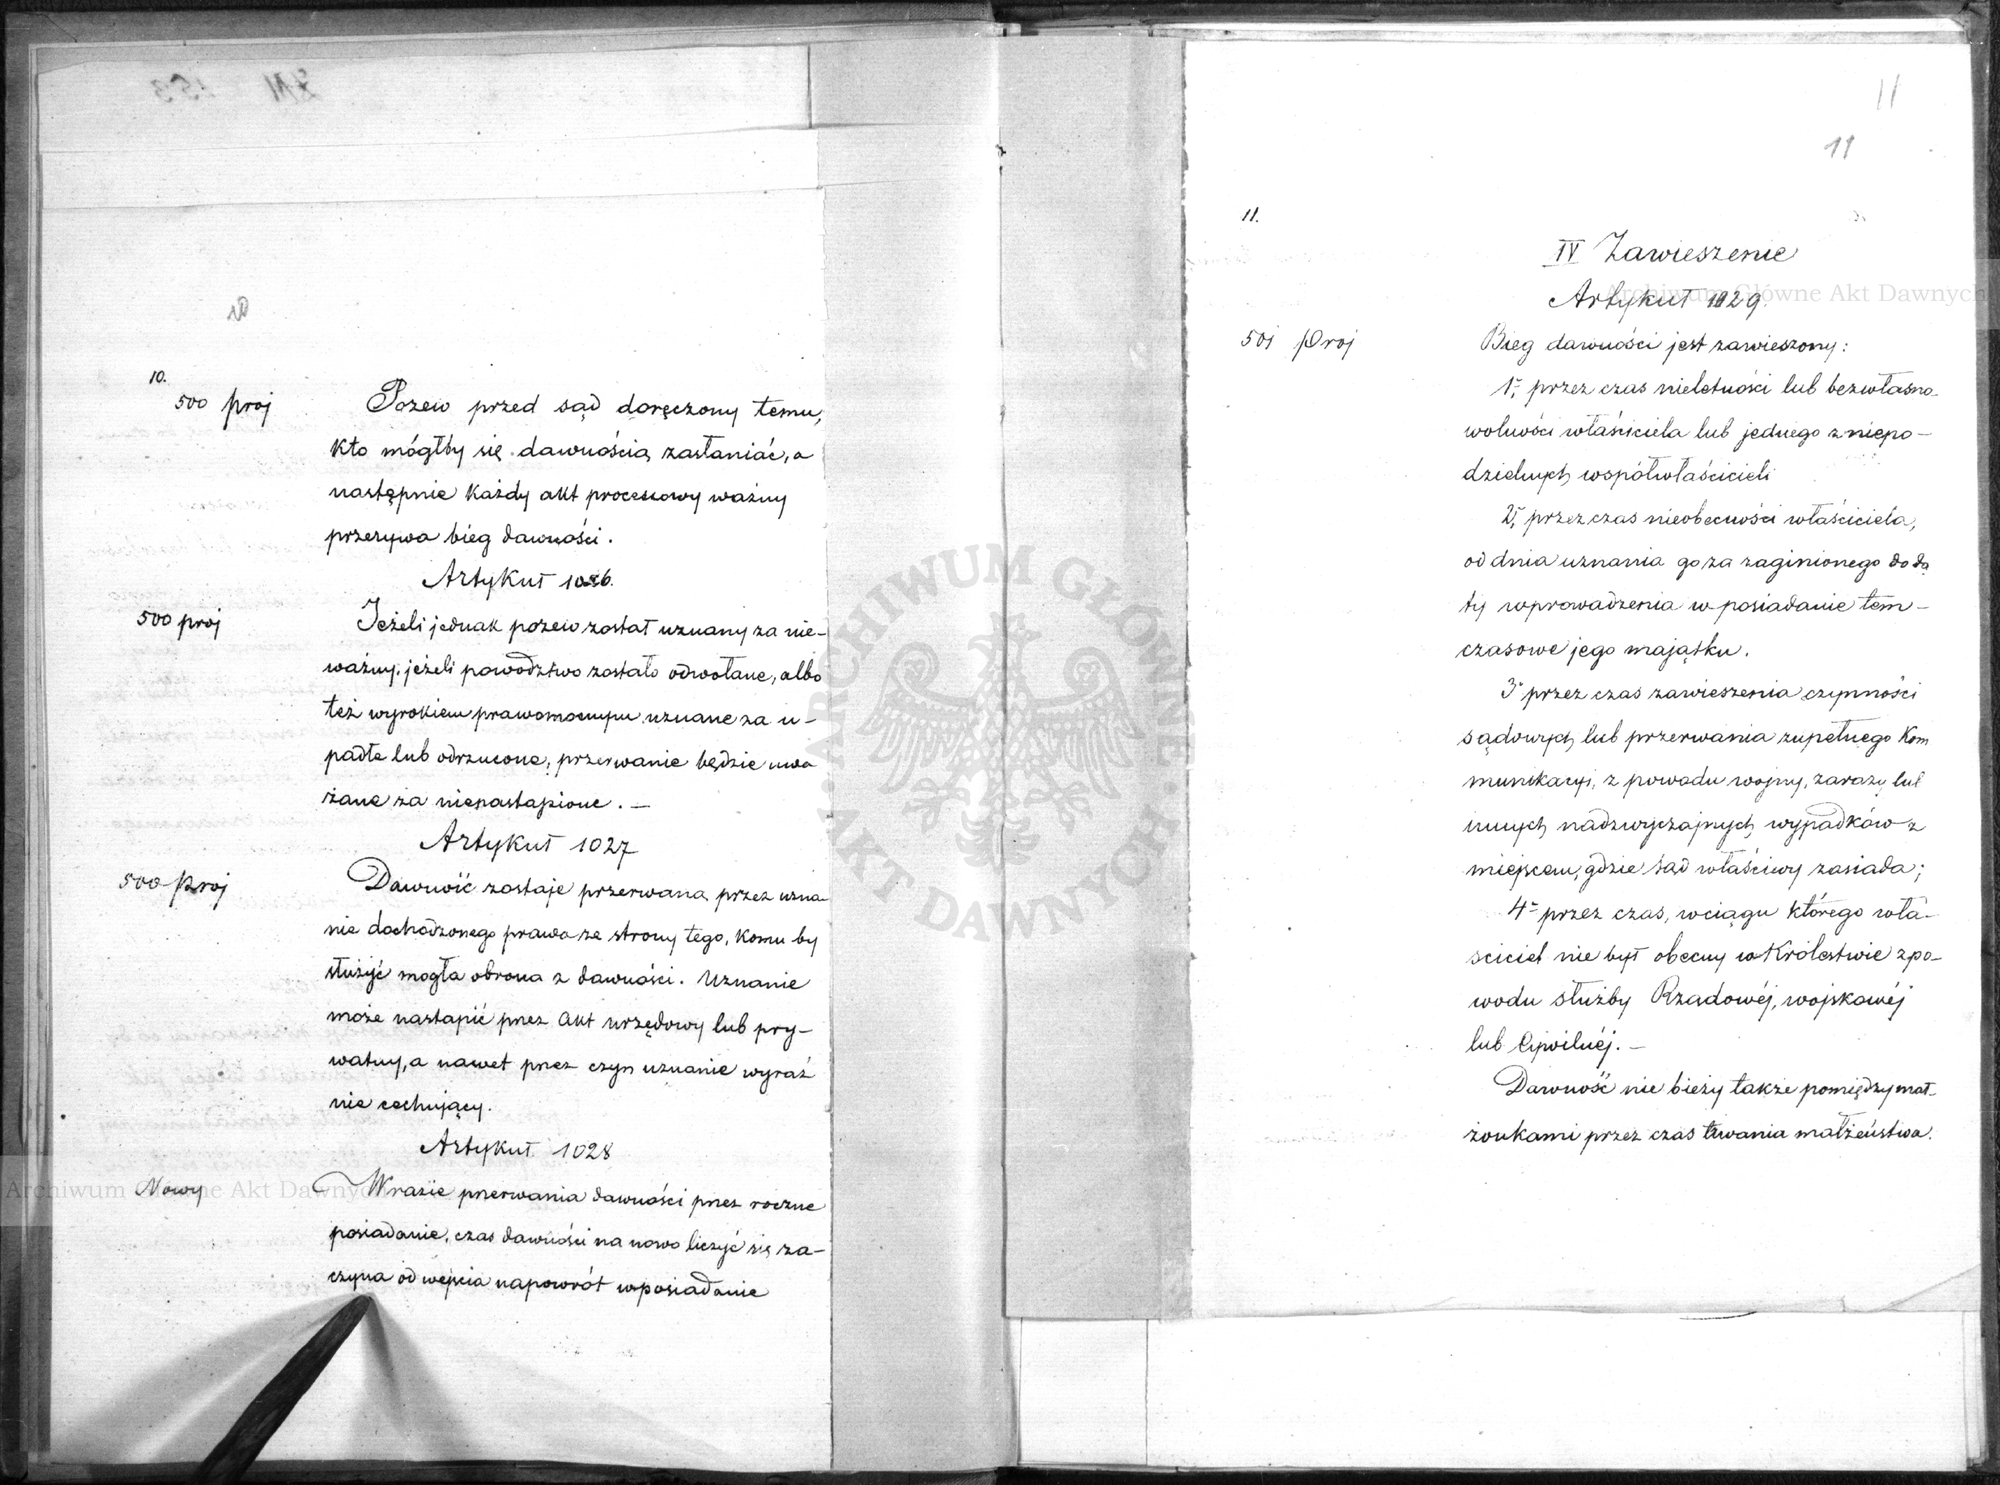 10.
500 proj
Pozew przed sąd doręczony temu,
kto mógłby się dawnością zasłaniać, a
następnie każdy akt processowy ważny
przerywa bieg dawności.
Artykuł 1026.
500 proj
Jeżeli jednak pozew został uznany za nie-
ważny, jeżeli powództwo zostało odwołane, albo
też wyrokiem prawomocnym uznane za u-
padłe lub odrzucone, przerwanie będzie uwa
żane za nienastąpione. —
Artykuł 1027
500 proj
Dawność zostaje przerwaną przez uzna-
nie dochodzonego prawa ze strony tego, komu by
służyć mogła obrona z dawności. Uznanie
może nastąpić przez akt urzędowy lub pry-
watny, a nawet przez czyn uznanie wyraź
nie cechujący.
Artykuł 1028
Nowy
W razie przerwania dawności przez roczne
posiadanie, czas dawności na nowo liczyć się za-
czyna od wejścia napowrót w posiadanie
11
11
11.
IV Zawieszenie
Artykuł 1029.
501 proj
Bieg dawności jest zawieszony:
1, przez czas nieletności lub bezwłasno-
wolności właściciela lub jednego z niepo-
dzielnych współwłaścicieli
2, przez czas nieobecności właściciela,
od dnia uznania go za zaginionego do da
ty wprowadzenia w posiadanie tem-
czasowe jego majątku.
3 przez czas zawieszenia czynności
sądowych lub przerwania zupełnego kom
munikacyi, z powodu wojny, zarazy lub
innych nadzwyczajnych wypadków z
miejscem, gdzie sąd właściwy zasiada;
4 przez czas, w ciągu którego wła-
ściciel nie był obecny w Królestwie z po-
wodu służby Rządowéj, wojskowéj
lub Cywilnéj. —
Dawność nie bieży także pomiędzy mał-
żonkami przez czas trwania małżeństwa.
Archiwum Główne Akt Dawnych
ARCHIWUM GŁÓWNE · AKT DAWNYCH ·
Archiwum Główne Akt Dawnych